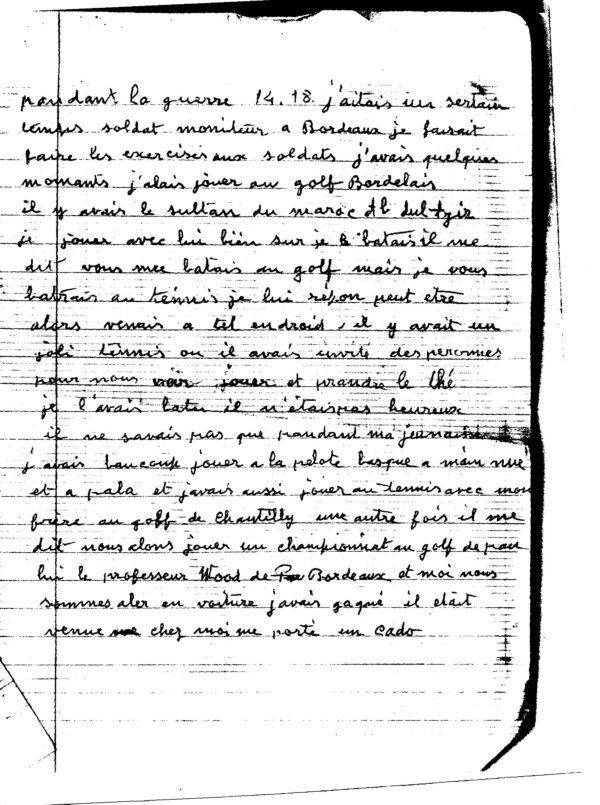 pandant la guerre 14.18 j'aitais un sertain
temps soldat moniteur a Bordeaux je faisait
faire les exercises aux soldats j'avais quelques
momants j'alais jouer au golf Bordelais
il y avais le sultan du maroc Ab dul-Aziz
je jouer avec lui bien sur je le batais il me
dit vous mee batais au golf mais je vous
batrais au tennis je lui répon peut etre
alors venais a tel endroid, il y avait un
joli tennis ou il avais invité des peronnes
pour nous voir jouer et prandre le thé
je l'avais batu il n'étais pas heureux
il ne savais pas que pandant ma jeunaisse
j'avais baucoup jouer a la pelote basque a main nue
et a pala et j'avais aussi jouer au tennis avec mon
frère au golf de Chantilly une autre fois il me
dit nous alons jouer un championnat au golf de pau
lui le professeur Wood de Bordeaux et moi nous
sommes aler en voiture j'avais gagné il etait
venue chez moi me porté un cado